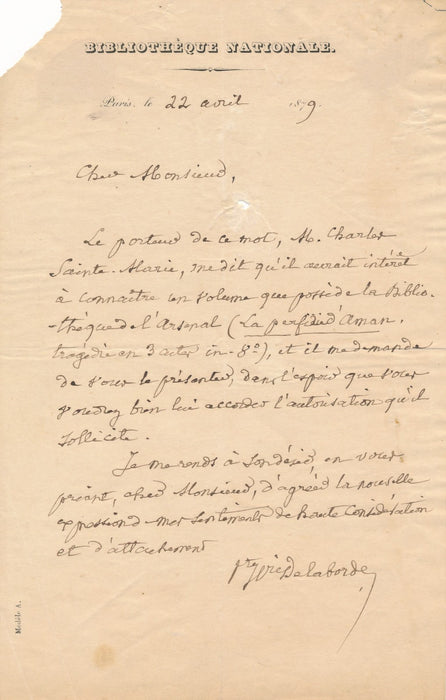 BIBLIOTHÈQUE NATIONALE.
Paris, le 22 avril 1879.
Cher Monsieur,
Le porteur de ce mot, M. Charles
Sainte-Marie, me dit qu'il aurait intérêt
à connaître un volume que possède la Biblio-
-thèque de l'Arsenal (La perfidie d'Aman,
tragédie en 3 actes in-8º), et il me demande
de vous le présenter, dans l'espoir que vous
voudrez bien lui accorder l'autorisation qu'il
sollicite.
Je me rends à son désir en vous
priant, cher Monsieur, d'agréer la nouvelle
expression de mes sentiments de haute considération
et d'attachement
Delaborde
Modèle A.